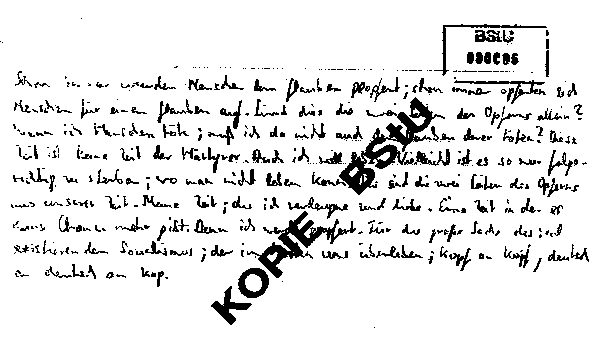 BStU
000095
Schon immer wurden Menschen dem Glauben geopfert; schon immer opferten sich
Menschen für einen Glauben auf. Sind dies die zwei der Opferns allein?
Wenn ich Menschen töte; muß ich da nicht auch den Glauben derer töten? Diese
Zeit ist keine Zeit der Märtyrer. Auch ich will Vielleicht ist es so nur folge-
richtig zu sterben; wo man nicht leben kann. sind die zwei des Opferns
uns unserer Zeit. Meine Zeit; die ich verleugne und liebe. Eine Zeit in der es
keine Chance mehr gibt. Denn ich werde geopfert. Für die große Sache des; real
existierenden Sozialismus; der uns überleben; Kopf an Kopf, deutsch
an deutsch an Kop.
KOPIE BStU